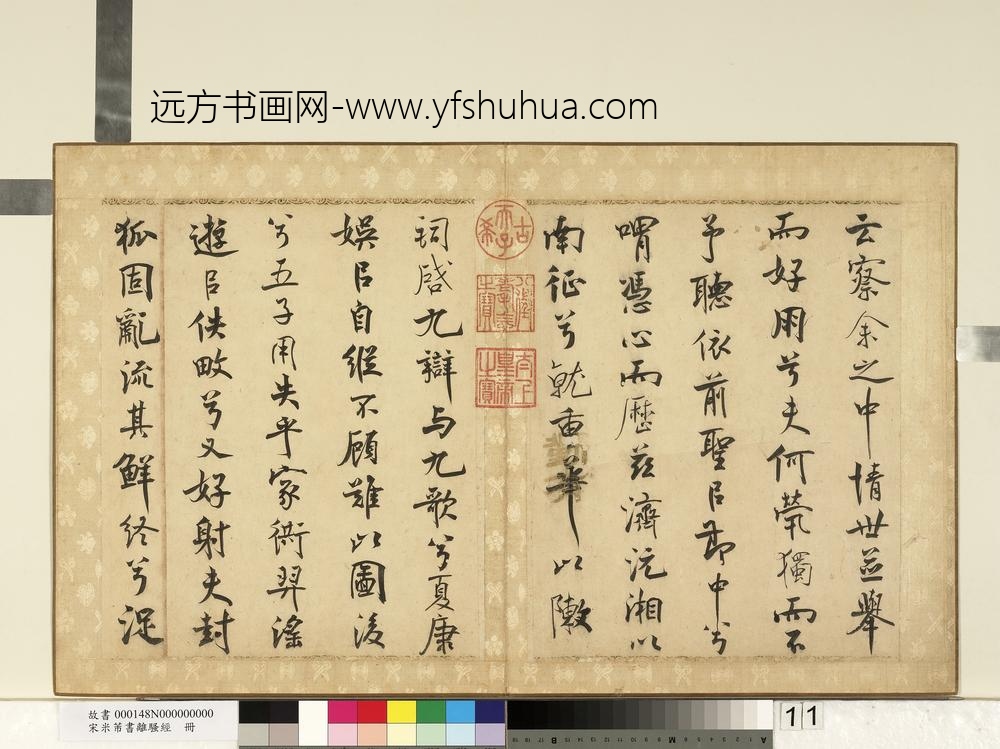 远方书画网-www.yfshuhua.com
云察余之中情世並舉
而好朋兮夫何煢獨而不
予聽依前聖以節中兮
喟憑心而歷茲濟沅湘以
南征兮就重華以敶
詞啟九辯与九歌兮夏康
娛以自縱不顧難以圖後
兮五子用失乎家衖羿淫
遊以佚畋兮又好射夫封
狐固亂流其鮮終兮浞
古希天子
八徵耄念之寶
太上皇帝之寶
故書 000148N000000000
宋米芾書離騷經 冊
11